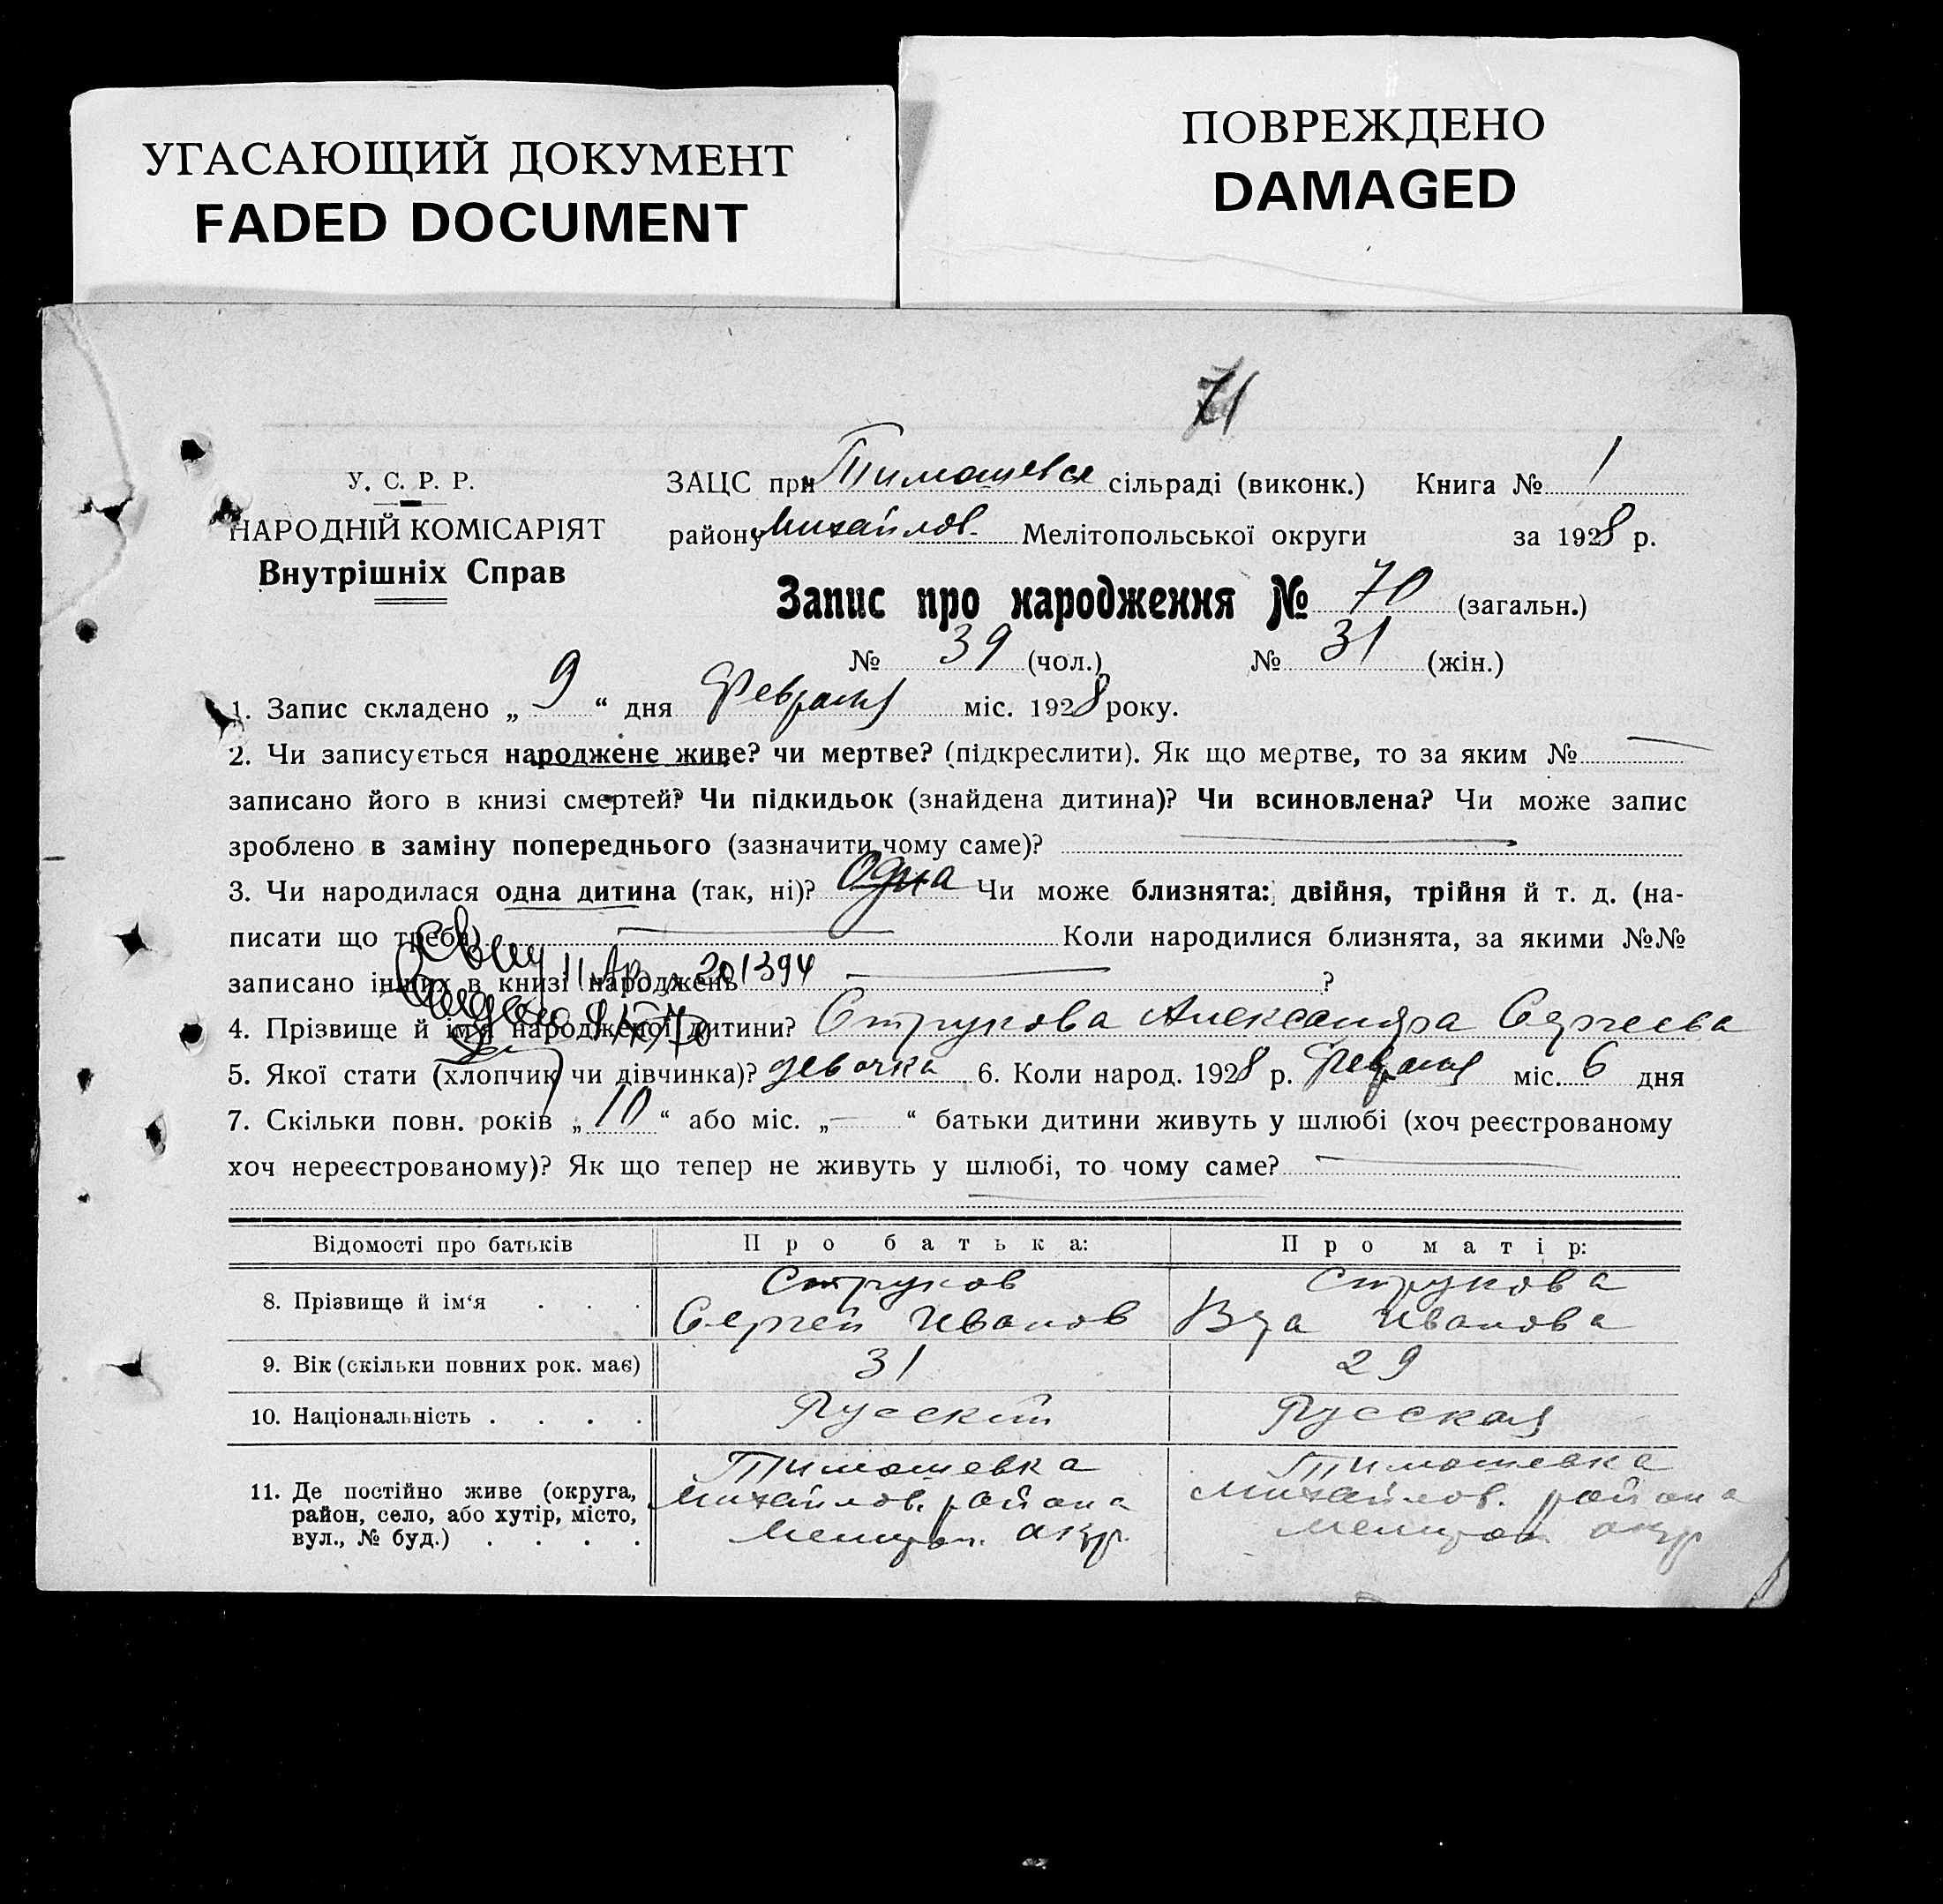 УГАСАЮЩИЙ ДОКУМЕНТ
FADED DOCUMENT
ПОВРЕЖДЕНО
DAMAGED
71
У. С. Р. Р.
НАРОДНІЙ КОМІСАРІЯТ
Внутрішніх Справ
ЗАЦС при Тимошевск сільраді (виконк.) Книга № 1
району Михайлов. Мелітопольської округи за 1928 р.
Запис про народження № 70 (загальн.)
№ 39 (чол.) № 31 (жін.)
1. Запис складено „ 9 “ дня Февраля міс. 1928 року.
2. Чи записується народжене живе? чи мертве? (підкреслити). Як що мертве, то за яким №
записано його в книзі смертей? Чи підкидьок (знайдена дитина)? Чи всиновлена? Чи може запис
зроблено в заміну попереднього (зазначити чому саме)?
3. Чи народилася одна дитина (так, ні)? Одна Чи може близнята: двійня, трійня й т. д. (на-
писати що треба) Коли народилися близнята, за якими №№
записано інших в книзі народжень ?
201394
4. Прізвище й ім'я народженої дитини? Струкова Александра Сергеева
5. Якої стати (хлопчик чи дівчинка)? девочка 6. Коли народ. 1928 р. Февраля міс. 6 дня
7. Скільки повн. років „ 10 “ або міс. „ — “ батьки дитини живуть у шлюбі (хоч реєстрованому
хоч нереєстрованому)? Як що тепер не живуть у шлюбі, то чому саме?
Відомості про батьків Про батька: Про матір:
8. Прізвище й ім'я . . . Струков Сергей Иванов Струкова Вера Иванова
9. Вік (скільки повних рок. має) 31 29
10. Національність . . . . Русский Русская
11. Де постійно живе (округа, район, село, або хутір, місто, вул., № буд.) . . . .
Тимошевка Тимошевка
Михайлов. района Михайлов. района
Мелитоп. окр. Мелитоп. окр